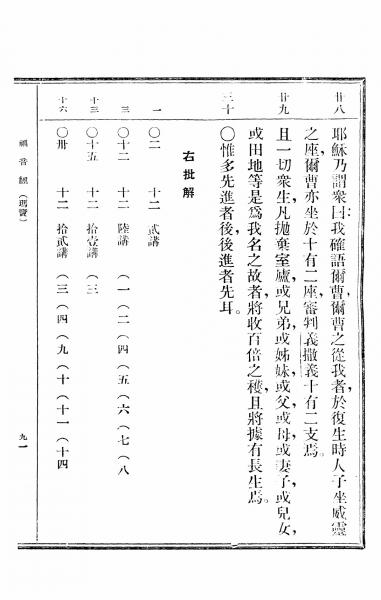 廿八
耶穌乃謂衆曰、我確語爾曹、爾曹之從我者、於復生時人子坐威靈
之座、爾曹亦坐於十有二座、審判義撒義十有二支焉。
廿九
且一切衆生、凡拋棄室廬、或兄弟、或姊妹、或父、或母、或妻子、或兒女、
或田地等、是爲我名之故者、將收百倍之穫、且將據有長生焉。
三十
〇惟多先進者後、後進者先耳。
右批解
一 〇二 十二 貳講
三 〇十二 十二 陸講 （一（二（四（五（六（七（八
十三 〇十五 十二 拾壹講 （三
十六 〇卅 十二 拾貳講 （三（四（九（十（十一（十四
福音經（瑪竇）
九一